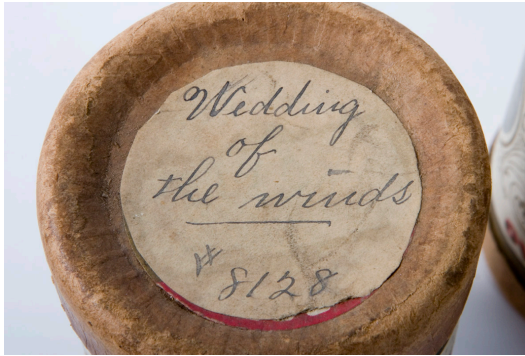 Wedding
of
the winds
# 8128